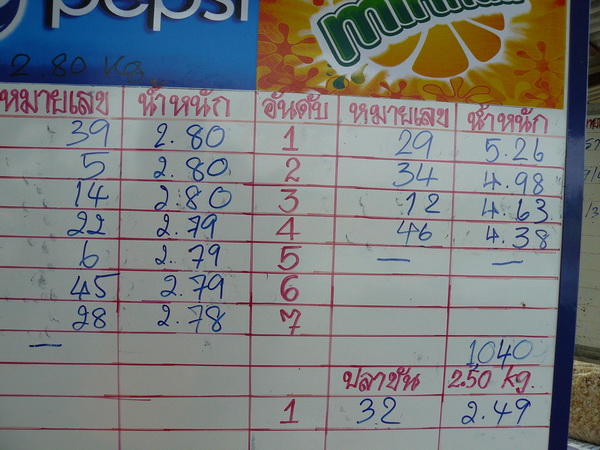 pepsi
mirinda
2.80 Kg
หมายเลข น้ำหนัก อันดับ หมายเลข น้ำหนัก
39 2.80 1 29 5.26
5 2.80 2 34 4.98
14 2.80 3 12 4.63
22 2.79 4 46 4.38
6 2.79 5 — —
45 2.79 6
28 2.78 7
—
1040
ปลาชัน 2.50 kg.
1 32 2.49